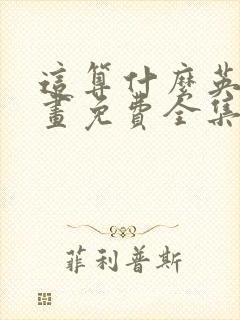 這算什麼英
畫免費全集
菲利普斯